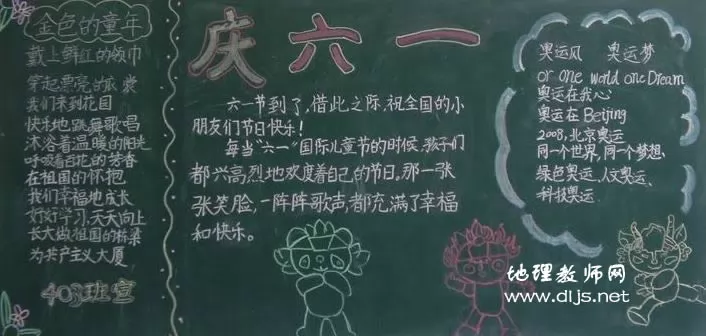 金色的童年
戴上鲜红的领巾
穿起漂亮的衣裳
我们来到花园
快乐地跳舞歌唱
沐浴着温暖的阳光
呼吸着百花的芳香
在祖国的怀抱
我们幸福地成长
好好学习,天天向上
长大做祖国的栋梁
为共产主义大厦
403班宣
庆六一
六一节到了,借此之际,祝全国的小
朋友们节日快乐!
每当“六一”国际儿童节的时候,孩子们
都兴高烈地欢度着自己的节日,那一张
张笑脸,一阵阵歌声,都充满了幸福
和快乐。
奥运风 奥运梦
or one world one Dream
奥运在我心
奥运在Beijing
2008,北京奥运
同一个世界,同一个梦想、
绿色奥运、人文奥运、
科技奥运
地理教师网
www.dljs.net